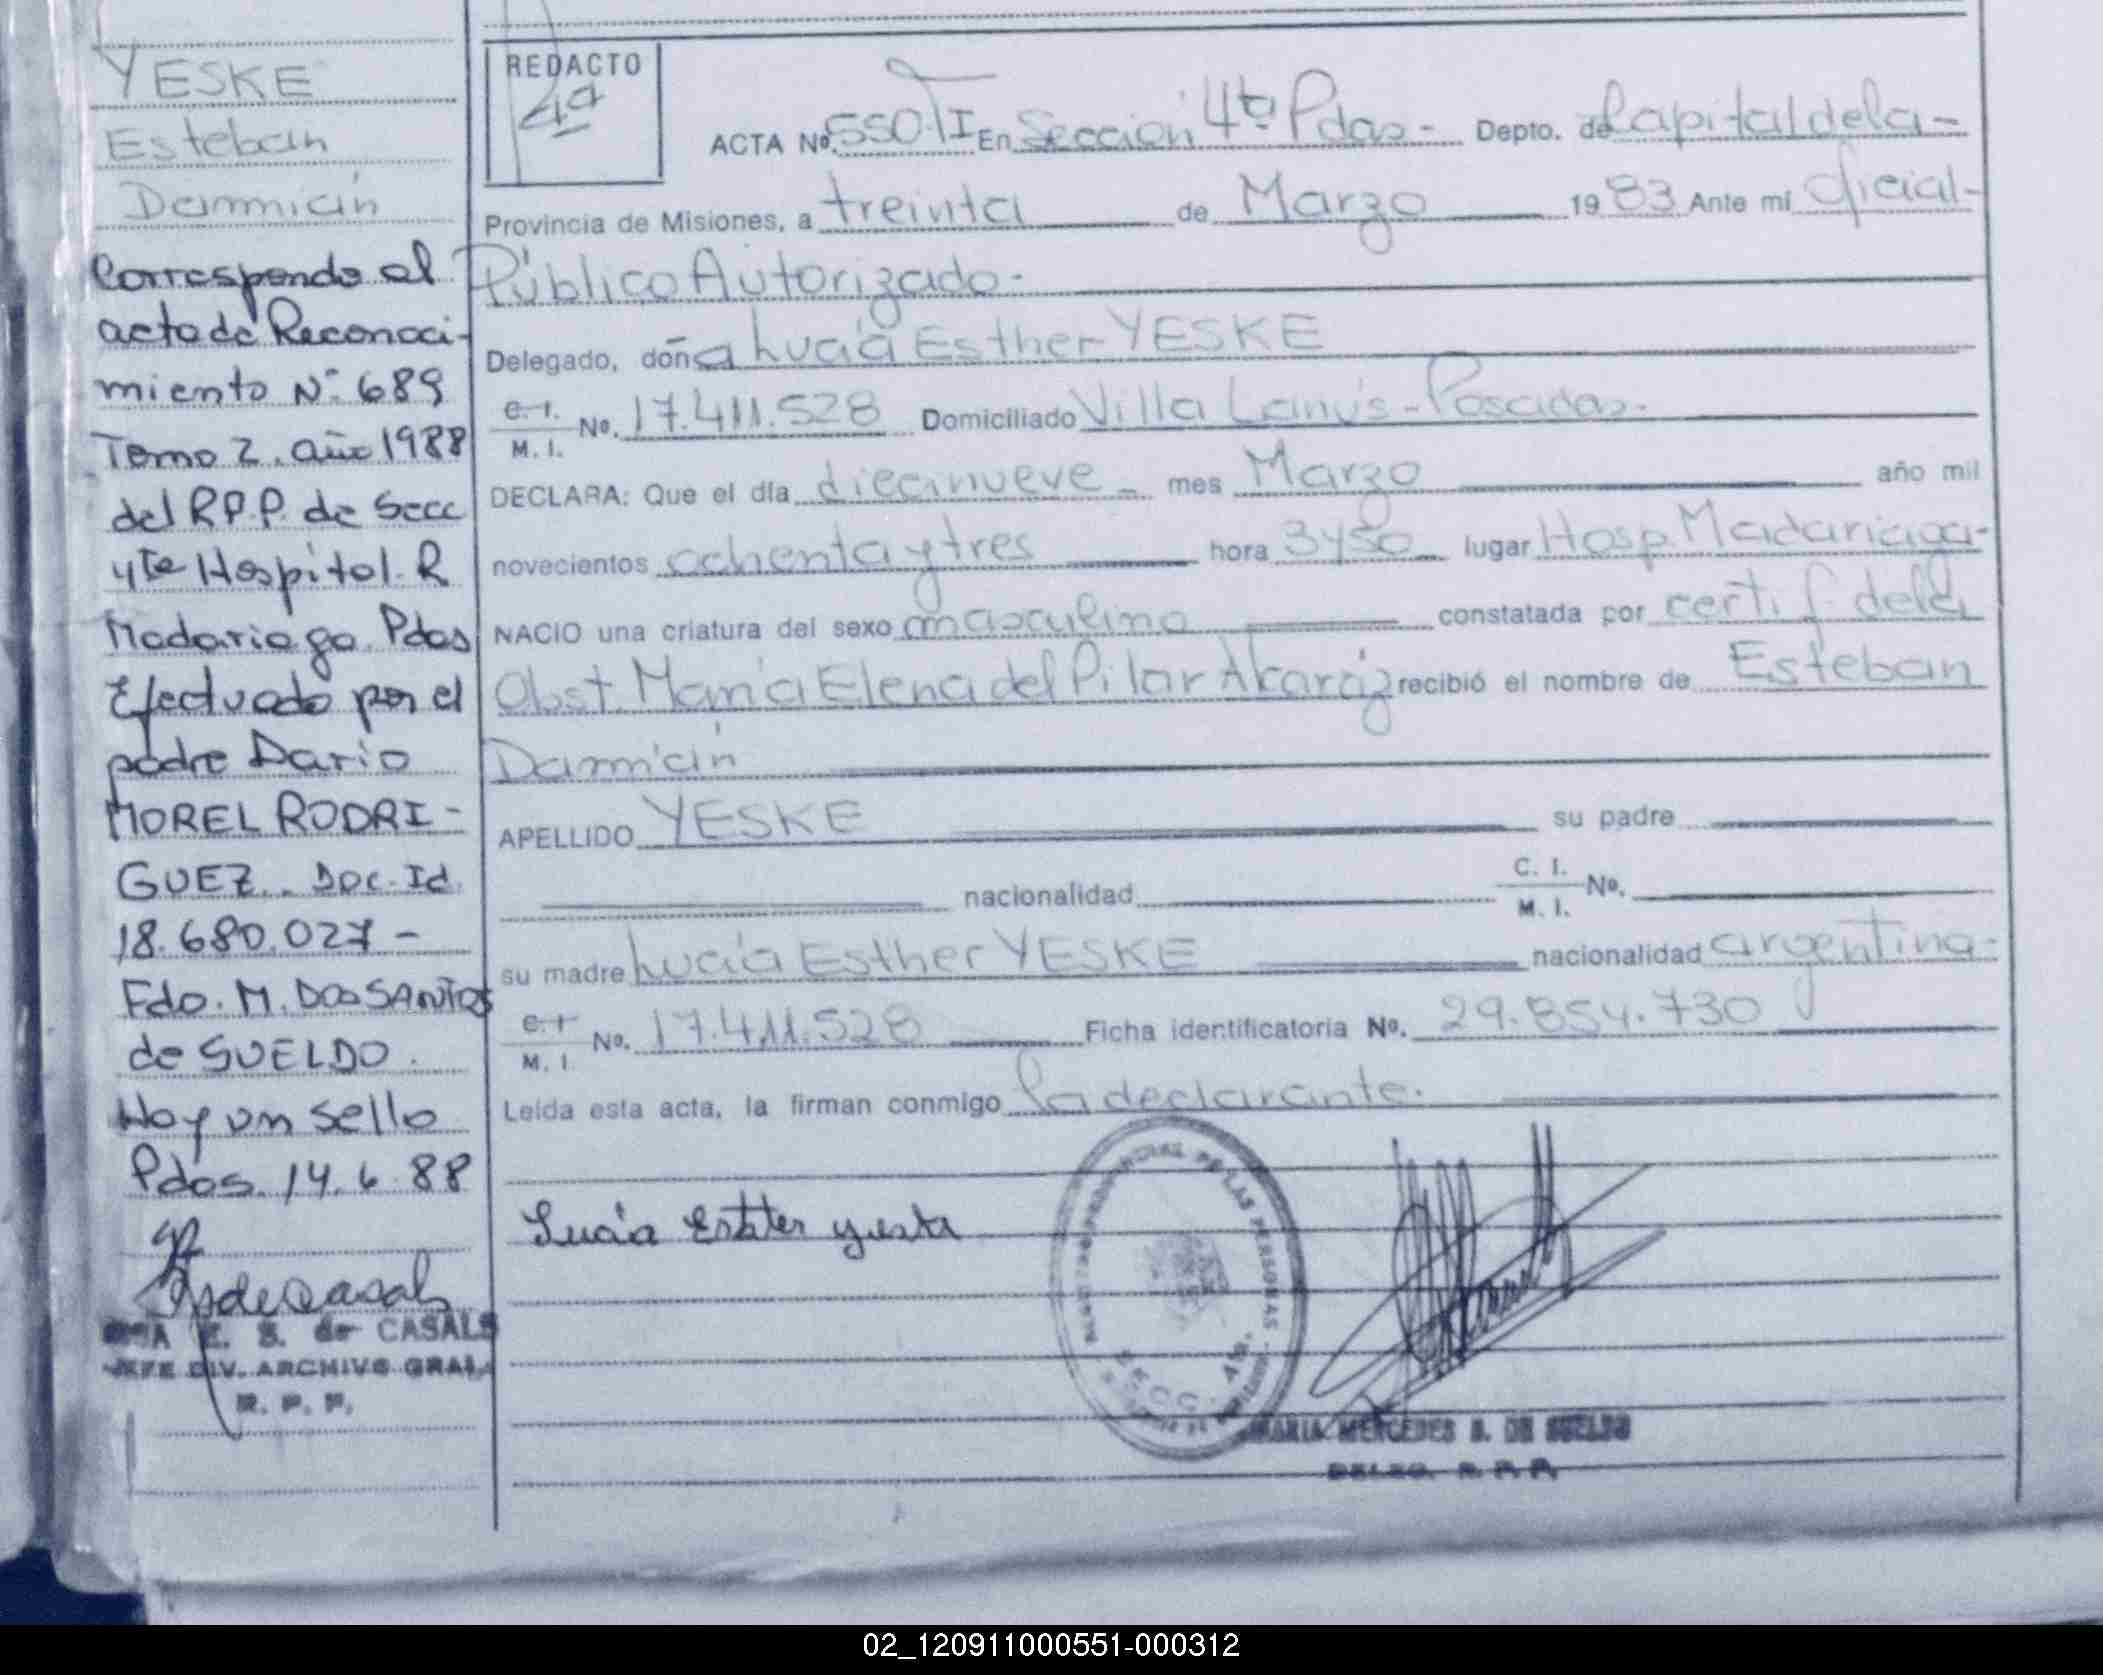 YESKE
Esteban
Damián
Corresponde al
acta de Reconoci-
miento Nº 689
Tomo 2. año 1988
del R.P.P. de Secc
4ta Hospital. R
Madariaga. Pdas
Efectuado por el
padre Dario
MOREL RODRI-
GUEZ.. Doc. Id.
18.680.027-
Fdo. M. Dos SANTOS
de SUELDO.
Hay un sello
Pdas. 14.6.88
E. S. de CASALS
JEFE DIV. ARCHIVO GRAL.
R. P. P.
REDACTO
4ª
ACTA Nº. 550. TI En Sección 4ta Pdas- Depto. de Capital de la-
Provincia de Misiones, a treinta de Marzo 1983 Ante mí Oficial-
Público Autorizado-
Delegado, doña Lucía Esther YESKE
C. I. / M. I. Nº. 17.411.528 Domiciliado Villa Lanús - Posadas.-
DECLARA: Que el día diecinueve - mes Marzo año mil
novecientos ochenta y tres hora 3 y 50 lugar Hosp. Madariaga-
NACIO una criatura del sexo masculino constatada por certif. de la
Obst. María Elena del Pilar Alcaráz recibió el nombre de Esteban
Damián
APELLIDO YESKE su padre
nacionalidad C. I. / M. I. Nº.
su madre Lucía Esther YESKE nacionalidad argentina-
C. I. / M. I. Nº. 17.411.528 Ficha identificatoria Nº. 29.854.730
Leída esta acta, la firman conmigo la declarante.
Lucía Esther
PROVINCIAL DE LAS PERSONAS
SECC. 4ta.
MARIA MERCEDES D. DE SUELDO
DELEG. R. P. P.
02_120911000551-000312